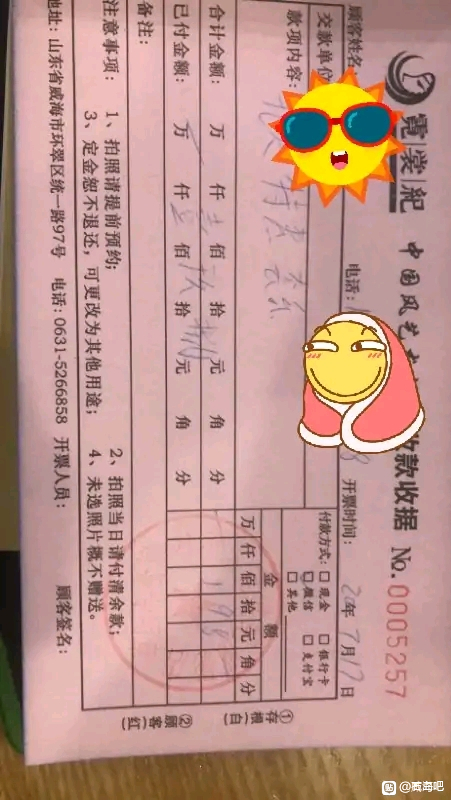 霓裳纪 中国风艺 收款收据 No.0005257
顾客姓名 电话: 开票时间: 年7月17日
交款单位
款项内容:
付款方式: □现金 □银行卡
□微信 □支付宝
□其他
金额
万仟佰拾元角分
198
合计金额: 万 仟 佰 拾 元 角 分
已付金额: 万 仟 佰 拾 元 角 分
备注:
注意事项: 1、拍照请提前预约; 2、拍照当日请付清余款;
3、定金恕不退还,可更改为其他用途; 4、未选照片概不赠送。
地址: 山东省威海市环翠区统一路97号 电话: 0631-5266858 开票人员: 顾客签名:
①存根(白)
②顾客(红)
贴 @威海吧